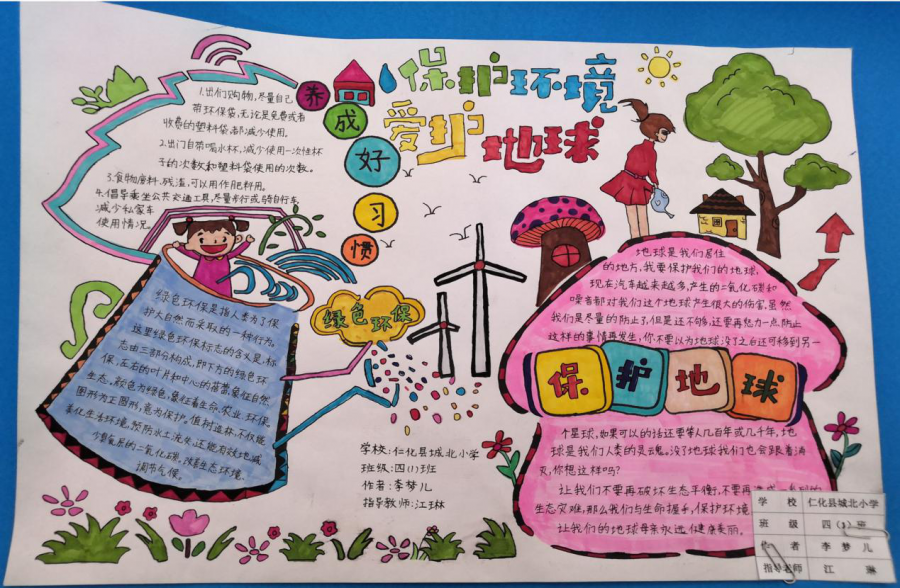 保护环境
爱护地球
养成好习惯
1.出们购物,尽量自己
带环保袋,无论是免费或者
收费的塑料袋,都减少使用。
2.出门自带喝水杯,减少使用一次性杯
子的次数和塑料袋使用的次数。
3.食物废料、残渣,可以用作肥料用。
4.倡导乘坐公共交通工具,尽量步行或骑自行车
减少私家车
使用情况。
绿色环保是指人类为了保
护大自然而采取的一种行为。
这里绿色环保标志的含义是:标
志由三部分构成,即下方的绿色环
保,左右的叶片和中心的蓓蕾,象征自然
生态,颜色为绿色,象征着生命、农业、环保
图形为正圆形,意为保护。植树造林,不仅能
美化生活环境,预防水土流失,还能有效地减
少空气层的二氧化碳,改善生态环境,
调节气候。
绿色环保
学校:仁化县城北小学
班级:四(1)班
作者:李梦儿
指导教师:江琳
地球是我们居住
的地方,我要保护我们的地球,
现在汽车越来越多,产生的二氧化碳和
噪音都对我们这个地球产生很大的伤害,虽然
我们是尽量的防止了,但是还不够,还要再努力一点防止
这样的事情再发生,你不要以为地球没了之后还可移到另一
保护地球
个星球,如果可以的话还要等人几百年或几千年,地
球是我们人类的灵魂。没了地球我们也会跟着消
灭,你想这样吗?
让我们不要再破坏生态平衡,不要再造成
生态灾难,那么我们与生命握手,保护环境
让我们的地球母亲永远健康美丽。
学校 仁化县城北小学
班级 四(1)班
作者 李梦儿
指导老师 江琳